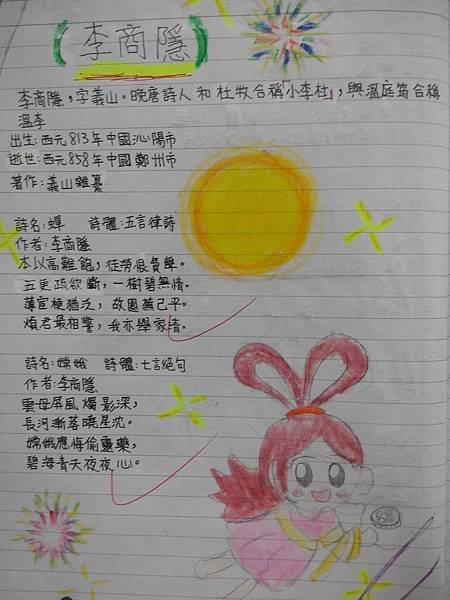 (李商隱)
李商隱,字義山。晚唐詩人和杜牧合稱「小李杜」,與溫庭筠合稱
溫李
出生:西元813年中國沁陽市
逝世:西元858年中國鄭州市
著作:義山雜纂
詩名:蟬 詩體:五言律詩
作者:李商隱
本以高難飽,徒勞恨費聲。
五更疏欲斷,一樹碧無情。
薄宦梗猶泛,故園蕪已平。
煩君最相警,我亦舉家清。
詩名:嫦娥 詩體:七言絕句
作者:李商隱
雲母屏風燭影深,
長河漸落曉星沉。
嫦娥應悔偷靈藥,
碧海青天夜夜心。